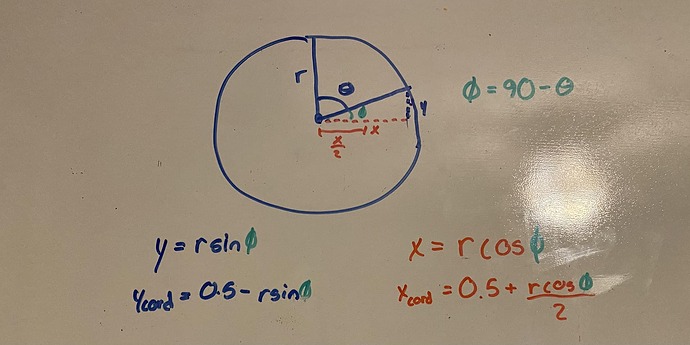 r
θ
ϕ = 90 - θ
ϕ
y
x
x/2
y = r sin ϕ
x = r cos ϕ
y_cord = 0.5 - r sin ϕ
x_cord = 0.5 + r cos ϕ / 2